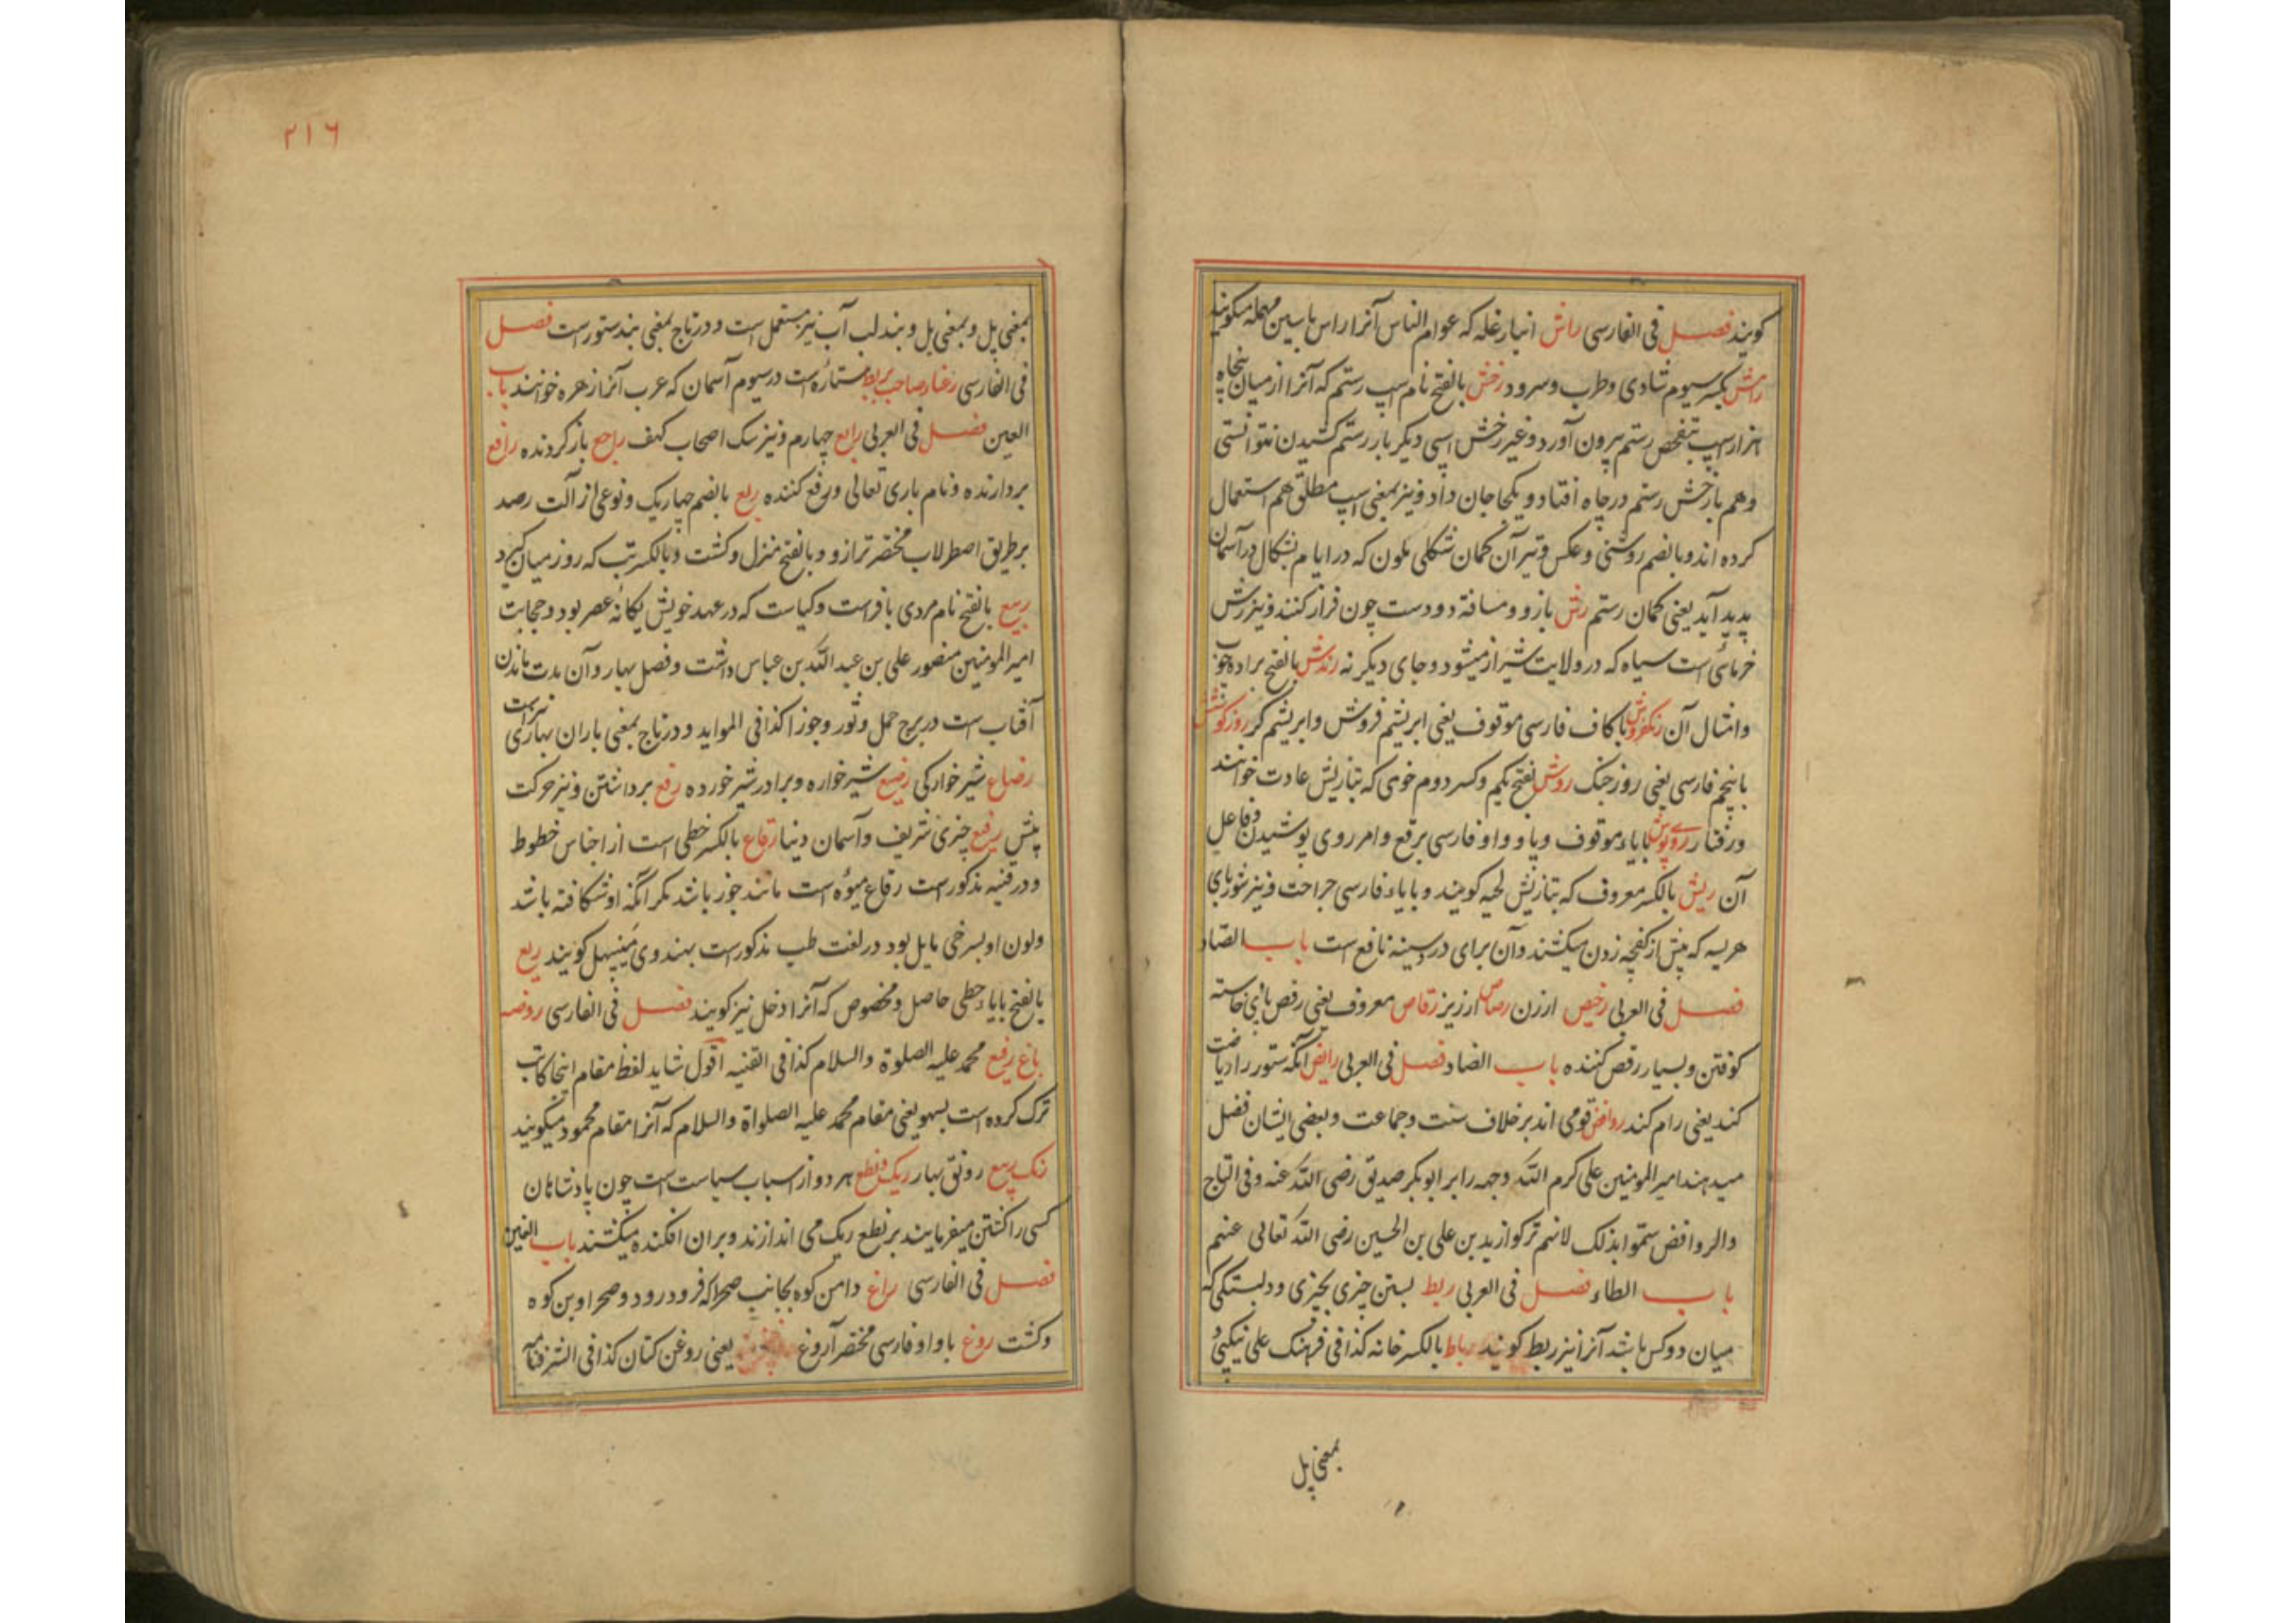 کویند فصل فی الفارسی راش انبار غله که عوام الناس آنرا راس با سین مهمله میکویند
رامش بکسر سیوم شادی و طرب و سرود رخش بالفتح نام اسپ رستم که آنرا از میان پنجاه
هزار اسپ بتفحص رستم بیرون آورد و غیر رخش اسپی دیکر بار رستم کشیدن نتوانستی
و هم با رخش رستم در چاه افتاد و یکجا جان داد و نیز بمعنی اسپ مطلق هم استعمال
کرده اند و بالضم روشنی و عکس و تیر آن کمان شکلی ملون که در ایام بشکال در آسمان
پدید آید یعنی کمان رستم رش بازو و مسافة دو دست چون فراز کنند و نیز رش
خرمائی است سیاه که در ولایت شیراز میشود و جای دیکر نه رندش بالفتح براده چوب
و امثال آن رنکفروش با کاف فارسی موقوف یعنی ابریشم فروش و ابریشم کر روز کوشش
با پنجم فارسی یعنی روز جنک روش بفتح یکم و کسر دوم خوی که بتازیش عادت خوانند
و رفتار روی پوش با یاء موقوف و با و واو فارسی برقع و امر روی پوشیدن و فاعل
آن ریش بالکسر معروف که بتازیش لحیه کویند و با یاء فارسی جراحت و نیز شوربای
هریسه که پیش از کفچه زدن میکشند و آن برای درد سینه نافع است باب الصاد
فصل فی العربی رخیص ارزن رصاص ارزیز رقاص معروف یعنی رقص بازی خاسته
کوفتن و بسیار رقص کننده باب الضاد فصل فی العربی رایض آنکه ستور را ریاضت
کند یعنی رام کند روافض قومی اند بر خلاف سنت و جماعت و بعضی ایشان فضل
میدهند امیر المومنین علی کرم الله وجهه را بر ابوبکر صدیق رضی الله عنه و فی التاج
والروافض سموا بذلک لانهم ترکوا زید بن علی بن الحسین رضی الله تعالی عنهم
باب الطاء فصل فی العربی ربط بستن چیزی بچیزی و دلبستکی که
میان دو کس باشد آنرا نیز ربط کویند رباط بالکسر خانه کذا فی فرهنک علی نیکپی و
بمعنی پل
۲۱۶
بمعنی پل و بمعنی پل و بند لب آب نیز مستعمل است و در تاج بمعنی بند ستور است فصل
فی الفارسی رغناد صاحب بربط ستاره است در سیوم آسمان که عرب آنرا زهره خوانند باب
العین فصل فی العربی رابع چهارم و نیز سک اصحاب کهف راجع باز کردنده رافع
بردارنده و نام باری تعالی و رفع کننده ربع بالضم چهاریک و نوعی از آلت رصد
بر طریق اصطرلاب مختصر ترازو و بالفتح منزل و کشت و بالکسر تب که روز میان کیرد
ربیع بالفتح نام مردی با فراست و کیاست که در عهد خویش یکانه عصر بود و حجابت
امیر المومنین منصور علی بن عبد الله بن عباس داشت و فصل بهار و آن مدت ماندن
آفتاب است در برج حمل و ثور و جوزا کذا فی المواید و در تاج بمعنی باران بهاری نیز است
رضاع شیر خوارکی رضیع شیر خواره و برادر شیر خورده رفع برداشتن و نیز حرکت
پیش رفیع چیزی شریف و آسمان دنیا رقاع بالکسر خطی است از اجناس خطوط
و در قنیه مذکور است رقاع میوه است مانند جوز باشد مکر آنکه او شکافته باشد
و لون او بسرخی مایل بود در لغت طب مذکور است بهندوی مینپهل کویند ریع
بالفتح با یاء حطی حاصل و مخصوص که آنرا دخل نیز کویند فصل فی الفارسی روضه
باغ رفیع محمد علیه الصلوة والسلام کذا فی القنیه اقول شاید لفظ مقام اینجا کاتب
ترک کرده است بسهو یعنی مقام محمد علیه الصلواة والسلام که آنرا مقام محمود میکویند
رنک ربیع رونق بهار ریک و نطع هر دو از اسباب سیاست است چون پادشاهان
کسی را کشتن میفرمایند بر نطع ریک می اندازند و بران افکنده میکشند باب الغین
فصل فی الفارسی راغ دامن کوه بجانب صحرا که فرود رود و صحرا و بن کوه
و کشت روغ با واو فارسی مختصر آروغ یعنی روغن کتان کذا فی الشرفنامه